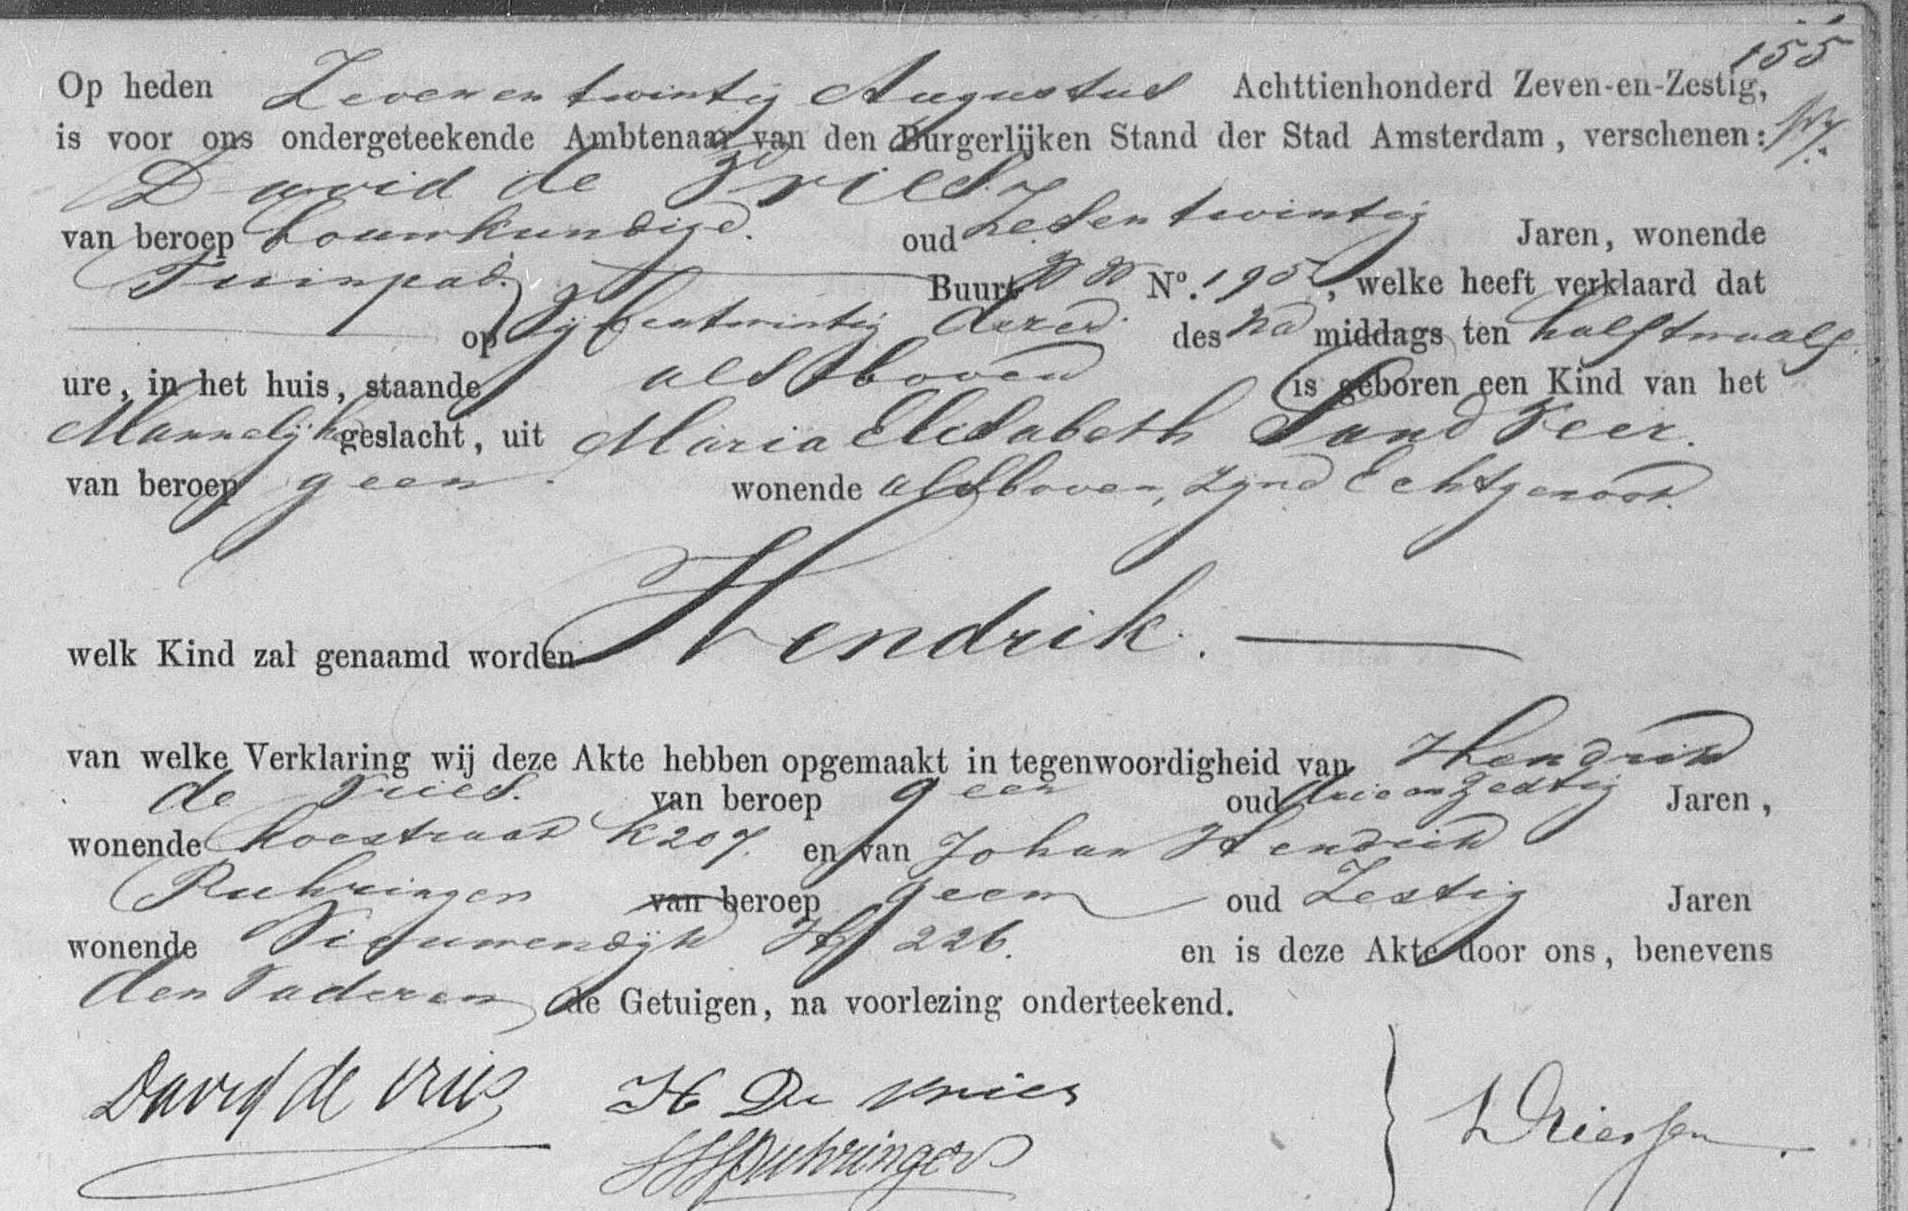 155
Op heden Zevenentwintig Augustus Achttienhonderd Zeven-en-Zestig,
is voor ons ondergeteekende Ambtenaar van den Burgerlijken Stand der Stad Amsterdam, verschenen:
David de Vries
van beroep bouwkundige. oud Zesentwintig Jaren, wonende
Tuinpad. Buurt No. 195, welke heeft verklaard dat
op Vijfentwintig dezer des na middags ten half twaalf
ure, in het huis, staande als boven is geboren een Kind van het
Mannelijk geslacht, uit Maria Elisabeth Sandveer.
van beroep geen. wonende als boven, zijnd Echtgenoot.
welk Kind zal genaamd worden Hendrik.
van welke Verklaring wij deze Akte hebben opgemaakt in tegenwoordigheid van Hendrik
de Vries. van beroep geen oud drieenzestig Jaren,
wonende Koestraat K 207. en van Johan Hendrik
Ruhringer van beroep geen oud Zestig Jaren
wonende Nieuwendijk H 226. en is deze Akte door ons, benevens
den Vader en de Getuigen, na voorlezing onderteekend.
David de Vries H De Vries Driessen